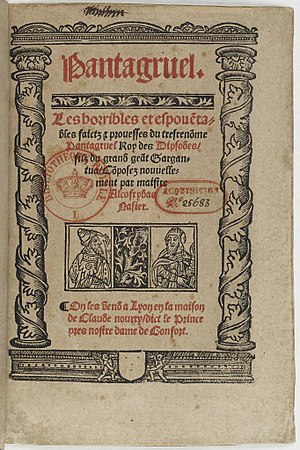 Pantagruel.
Les horribles et espouẽta-
bles faictz ⁊ prouesses du tresrenõme
Pantagruel Roy des Dipsodes/
filz du grand geãt Gargan-
tua/ Cõposez nouuelle-
ment par maistre
Alcofrybas
Nasier.
BIBLIOTHE
ACQUISITION
N° 25683
¶ On les vend a Lyon en la maison
de Claude nourry/ dict le Prince
pres nostre dame de Confort.